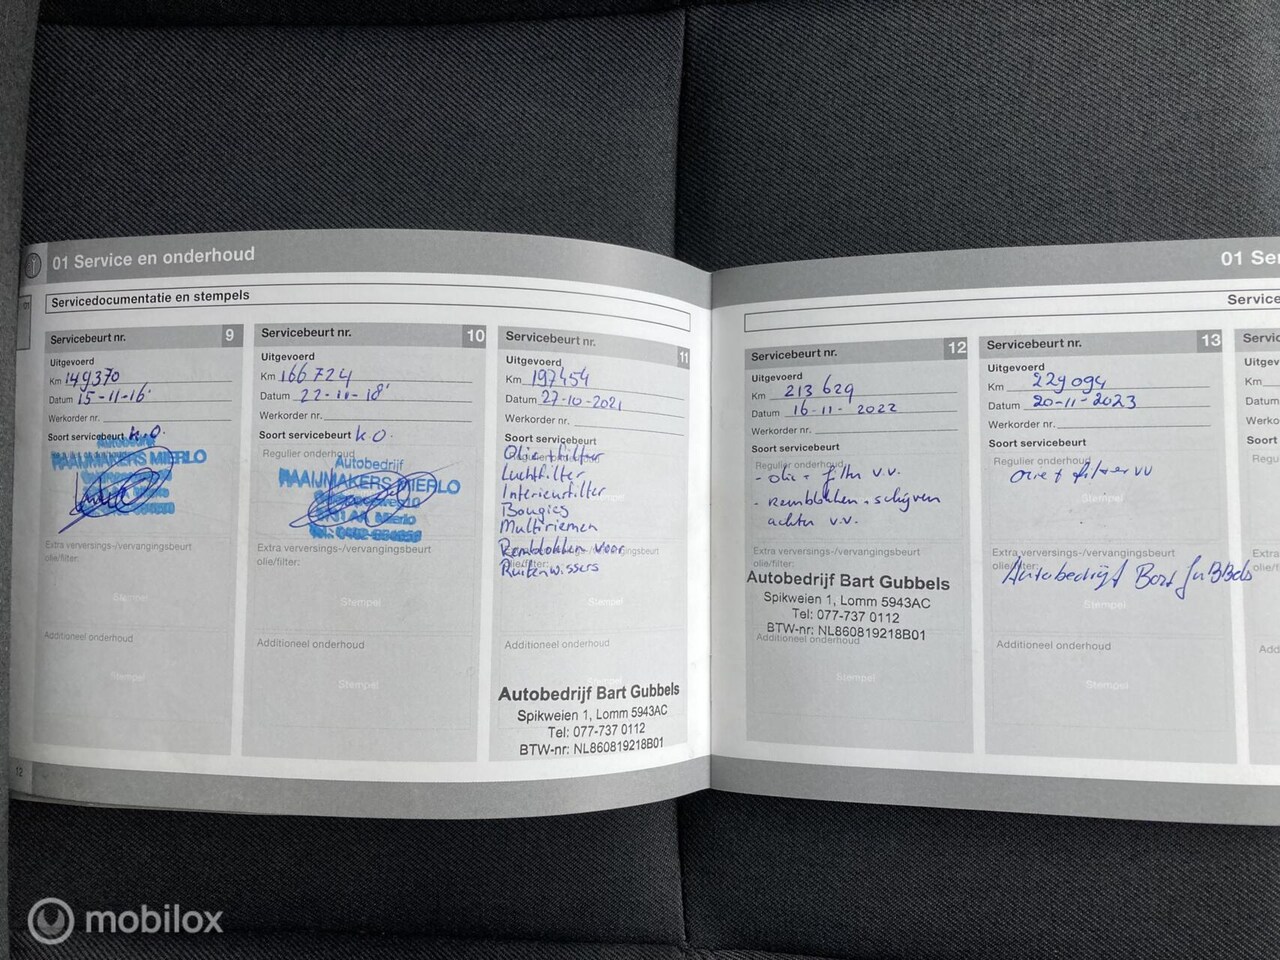 01 Service en onderhoud
Servicedocumentatie en stempels
Servicebeurt nr. 9
Uitgevoerd
Km 149370
Datum 15-11-16
Werkorder nr.
Soort servicebeurt k.o.
RAAIJMAKERS MIERLO
Extra verversings-/vervangingsbeurt
olie/filter:
Stempel
Additioneel onderhoud
Stempel
12
Servicebeurt nr. 10
Uitgevoerd
Km 166724
Datum 22-11-18
Werkorder nr.
Soort servicebeurt k.o.
Regulier onderhoud
Autobedrijf
RAAIJMAKERS MIERLO
Mierlo
Extra verversings-/vervangingsbeurt
olie/filter:
Stempel
Additioneel onderhoud
Stempel
Servicebeurt nr. 11
Uitgevoerd
Km 197454
Datum 27-10-2021
Werkorder nr.
Soort servicebeurt
Olie + filter
Luchtfilter
Interieurfilter
Bougies
Multiriemen
Remblokken voor
Ruitenwissers
Stempel
Additioneel onderhoud
Autobedrijf Bart Gubbels
Spikweien 1, Lomm 5943AC
Tel: 077-737 0112
BTW-nr: NL860819218B01
01 Ser
Service
Servicebeurt nr. 12
Uitgevoerd
Km 213629
Datum 16-11-2022
Werkorder nr.
Soort servicebeurt
Regulier onderhoud
- olie + filter v.v.
- remblokken + schijven
achter v.v.
Extra verversings-/vervangingsbeurt
olie/filter:
Autobedrijf Bart Gubbels
Spikweien 1, Lomm 5943AC
Tel: 077-737 0112
BTW-nr: NL860819218B01
Additioneel onderhoud
Stempel
Servicebeurt nr. 13
Uitgevoerd
Km 229094
Datum 20-11-2023
Werkorder nr.
Soort servicebeurt
Regulier onderhoud
olie + filter vv
Stempel
Extra verversings-/vervangingsbeurt
olie/filter:
Autobedrijf Bart Gubbels
Stempel
Additioneel onderhoud
Stempel
Servic
Uitgevoe
Km
Datum
Werko
Soort
Regu
Extra
olie/f
Add
mobilox